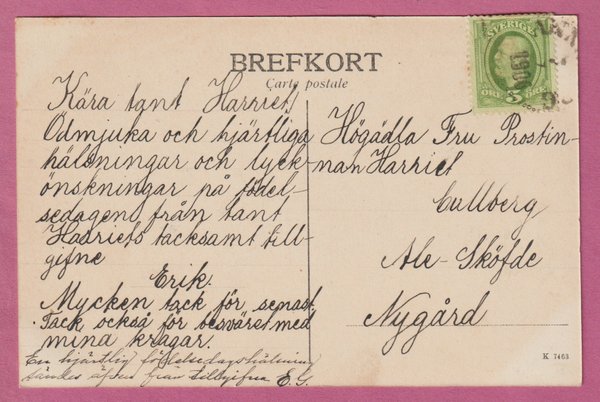 BREFKORT
Carte postale
SVERIGE
5
ÖRE ÖRE
Kära tant Harriet,
Ödmjuka och hjärtliga
hälsningar och lyck-
önskningar på födel-
sedagen från tant
Harriets tacksamt till-
gifne
Erik.
Mycken tack för senast.
Tack också för besväret med
mina kragar.
En hjärtlig födelsedagshälsning
sändes äfven från tillgifna E.G.
Högädla Fru Prostin-
nan Harriet
Cullberg
Ale-Sköfde
Nygård
K 7463